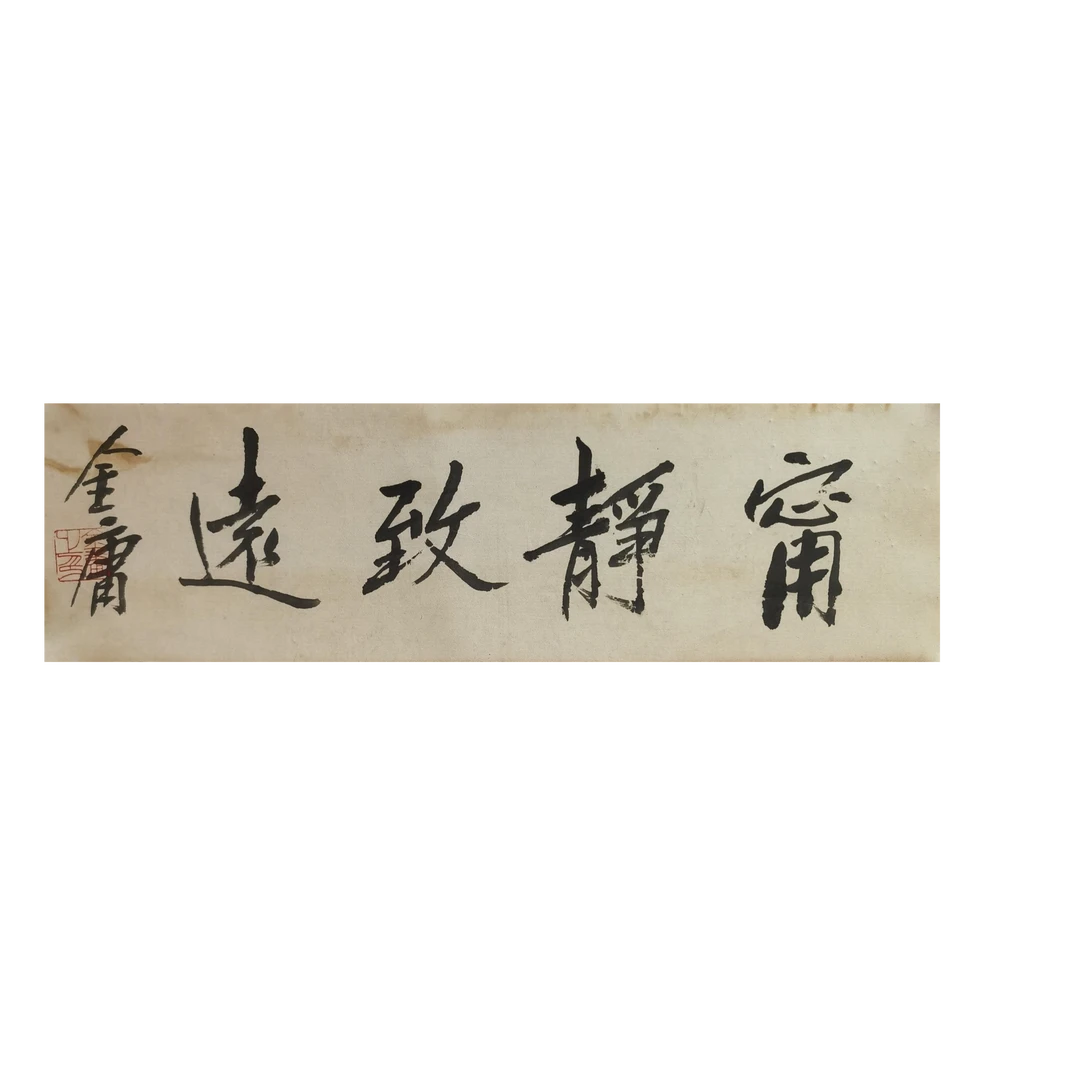 甯靜致遠
金庸